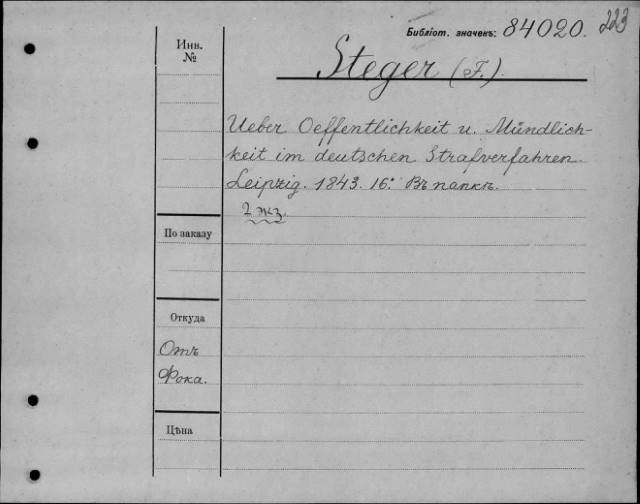 Библіот. значекъ: 84020. 223
Инв. №
Steger (F.).
Ueber Oeffentlichkeit u. Mündlich-
keit im deutschen Strafverfahren.
Leipzig. 1843. 16°. Въ папкѣ.
2 экз.
По заказу
Откуда
Отъ
Фока.
Цѣна